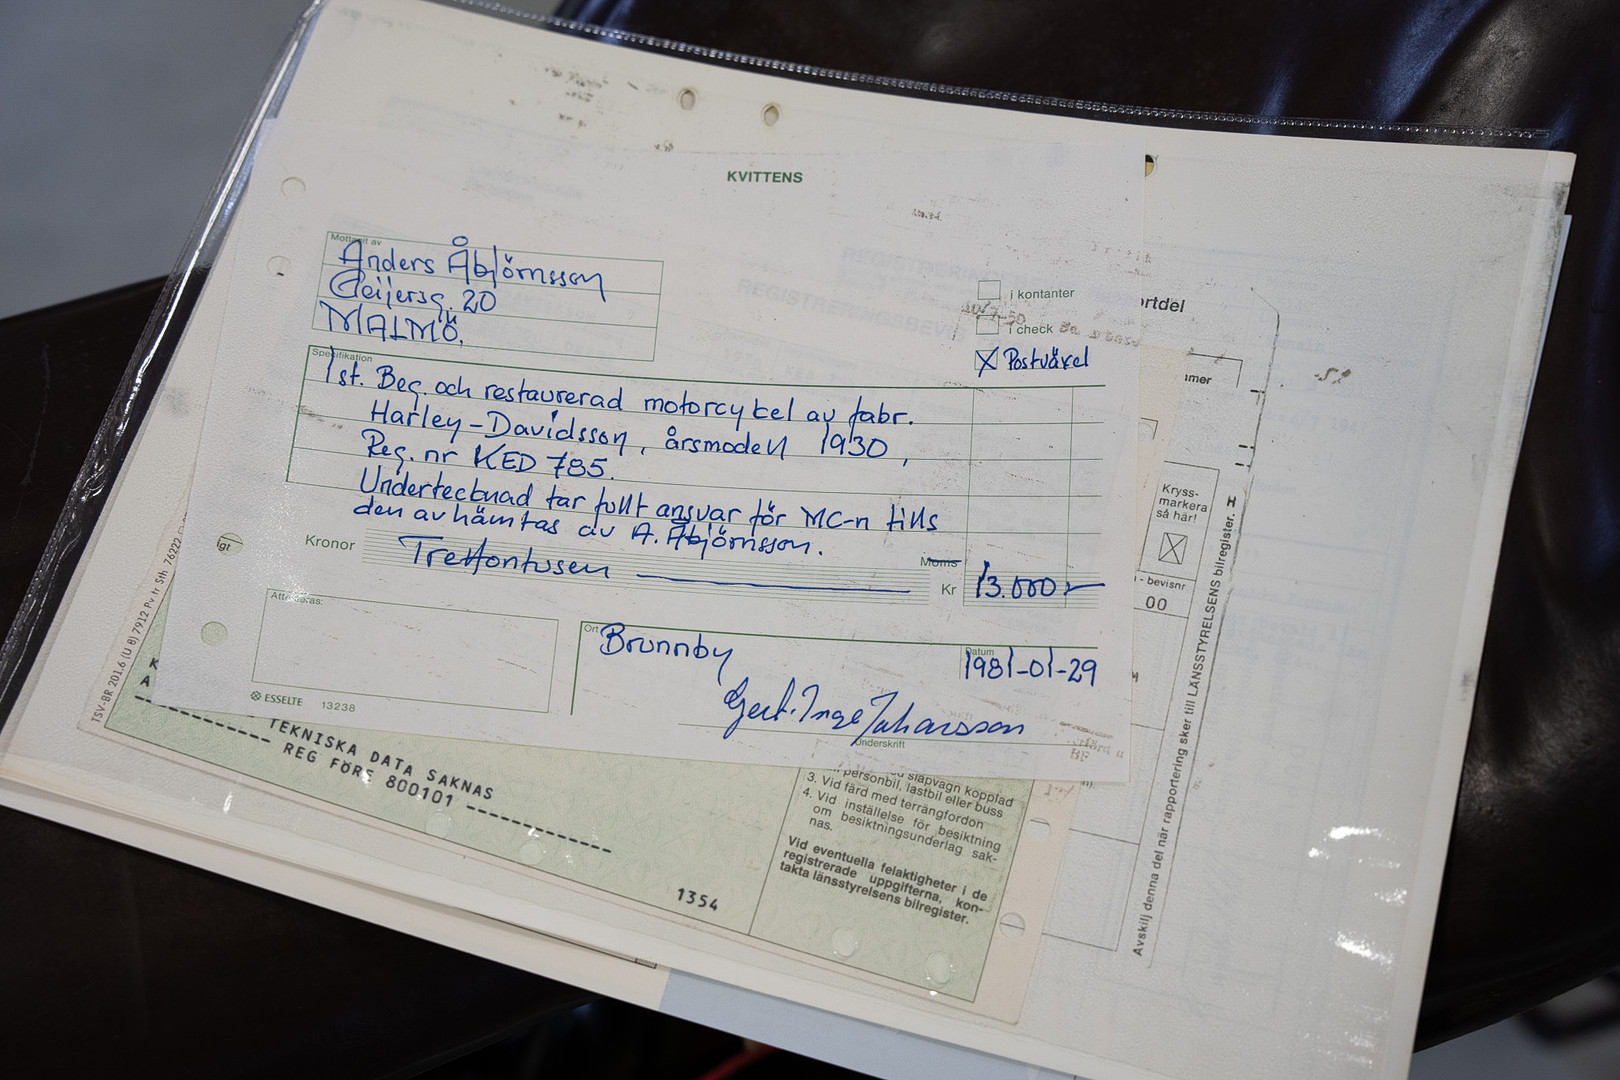 KVITTENS
Mottagit av
Anders Åbjörnsson
Geijersg. 20
MALMÖ.
i kontanter
i check
X Postväxel
Specifikation
1 st. Beg. och restaurerad motorcykel av fabr.
Harley-Davidsson, årsmodell 1930,
Reg. nr KED 785.
Undertecknad tar fullt ansvar för MC-n tills
den avhämtas av A. Åbjörnsson.
Kronor Trettontusen
Moms
Kr 13.000:-
Attesteras:
Ort Brunnby
Datum 1981-01-29
Gert-Inge Johansson
Underskrift
ESSELTE 13238
TSV-BR 201.6 (U 8) 7912 Pv tr Sth 76222
TEKNISKA DATA SAKNAS
REG FÖRS 800101
1354
släpvagn kopplad
personbil, lastbil eller buss
3. Vid färd med terrängfordon
4. Vid inställelse för besiktning
om besiktningsunderlag sak-
nas.
Vid eventuella felaktigheter i de
registrerade uppgifterna, kon-
takta länsstyrelsens bilregister.
REGISTRERINGSBEVIS
ortdel
mer
Kryss-
markera
så här!
- bevisnr
00
Avskilj denna del när rapportering sker till LÄNSSTYRELSENS bilregister.